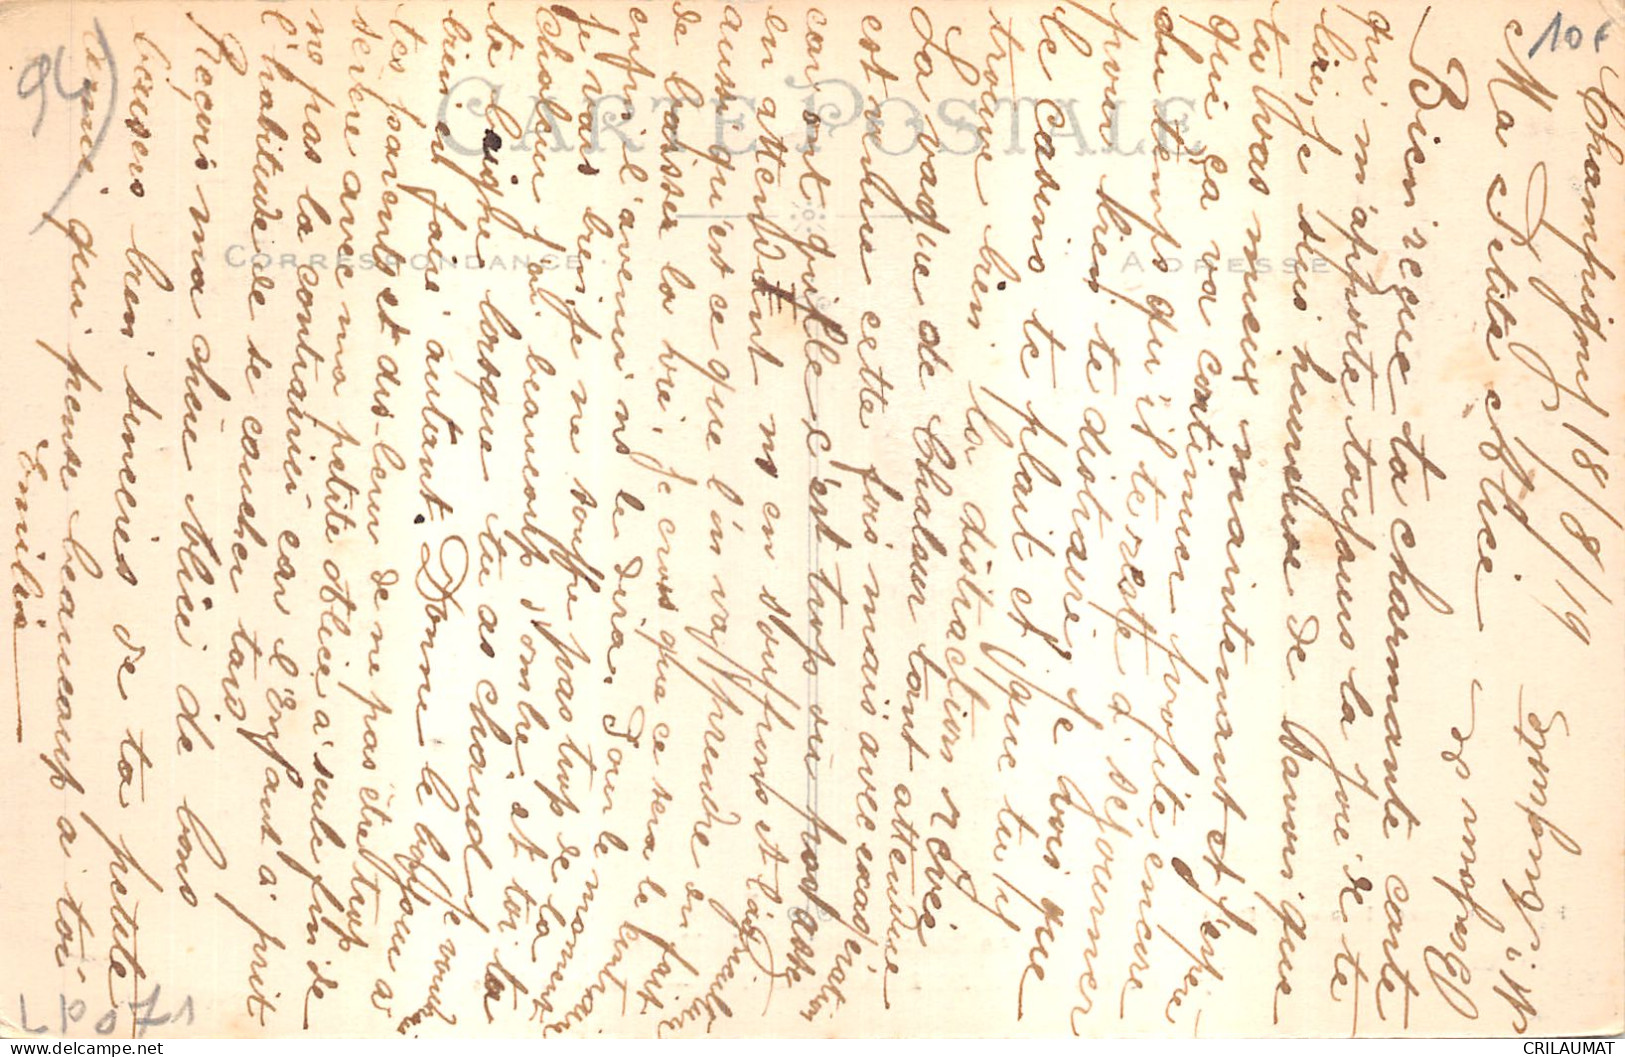 Champigny 18/8/19
Ma Petite Alice
Bien reçue ta charmante carte
qui m'apporte toujours la joie de te
lire, je suis heureuse de savoir que
tu vas mieux maintenant et j'espère
que ça va continuer profite encore
du temps qu'il te reste à séjourner
pour bien te distraire, je vois que
le casino te plait et que tu y
trouve bien la distraction rêvée
La vague de Chaleur tant attendue
est venue cette fois mais avec exagération
car on gonfle c'est trop ou pas assez
en attendant ns en souffrons et
aussi qu'est ce que l'on va prendre en
de la hori, je crois que ce sera le
enfin l'avenir ns le dira. Pour le moment
je vais bien je ne souffre pas trop de la
chaleur j'ai beaucoup d'ombre et toi ta
te baigne lorsque tu as chaud je voudrais
bien en faire autant Donne le bonjour à
tes parents et dis-leur de ne pas être trop
sévère avec ma petite Alice à seule fin de
ne pas la contrarier car l'Enfant a prit
l'habitude de se coucher tard
Reçois ma chère Alice de bons
baisers bien sincères de ta petite
amie qui pense beaucoup à toi
Emilie
CARTE POSTALE
CORRESPONDANCE
ADRESSE
10€
94)
LP071
CRILAUMAT